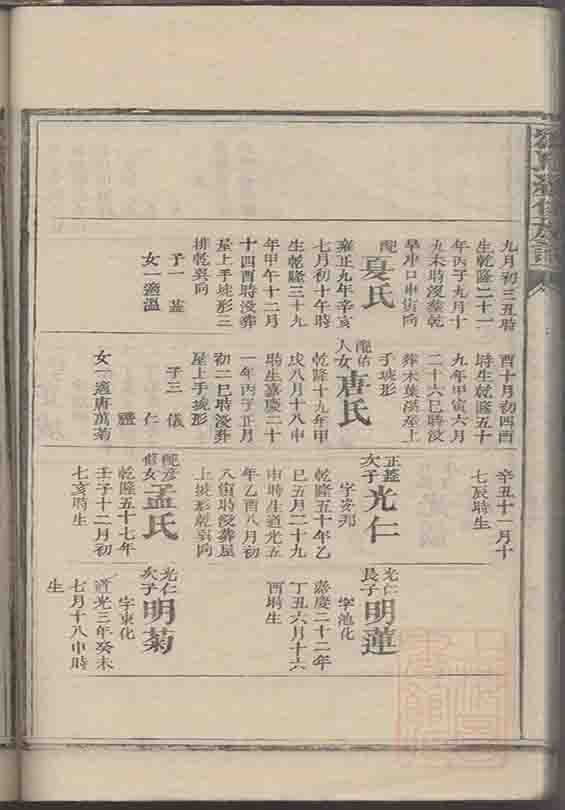 九月初三丑時
生乾隆二十一
年丙子九月十
九未時沒葬乾
旱冲口申寅向
配夏氏
雍正九年辛亥
七月初十午時
生乾隆三十九
年甲午十二月
十四酉時沒葬
屋上手坡形三
排乾巽向
子一 蓋
女一適溫
酉十月初四酉
時生乾隆五十
九年甲寅六月
二十六巳時沒
葬木葉漢屋上
手坡形
配佑人女唐氏
乾隆十九年甲
戌八月十八申
時生嘉慶二十
一年丙子正月
初二巳時沒葬
屋上手坡形
子三 儀
仁
禮
女一適唐萬菊
辛丑十一月十
七辰時生
正蓋次子光仁
字安邦
乾隆五十年乙
巳五月二十九
申時生道光五
年乙酉八月初
八寅時沒葬屋
上坡形乾巽向
配彥修女孟氏
乾隆五十七年
壬子十二月初
七亥時生
光仁長子明蓮
字池化
嘉慶二十二年
丁丑六月十六
酉時生
光仁次子明菊
字東化
道光三年癸未
七月十八申時
生